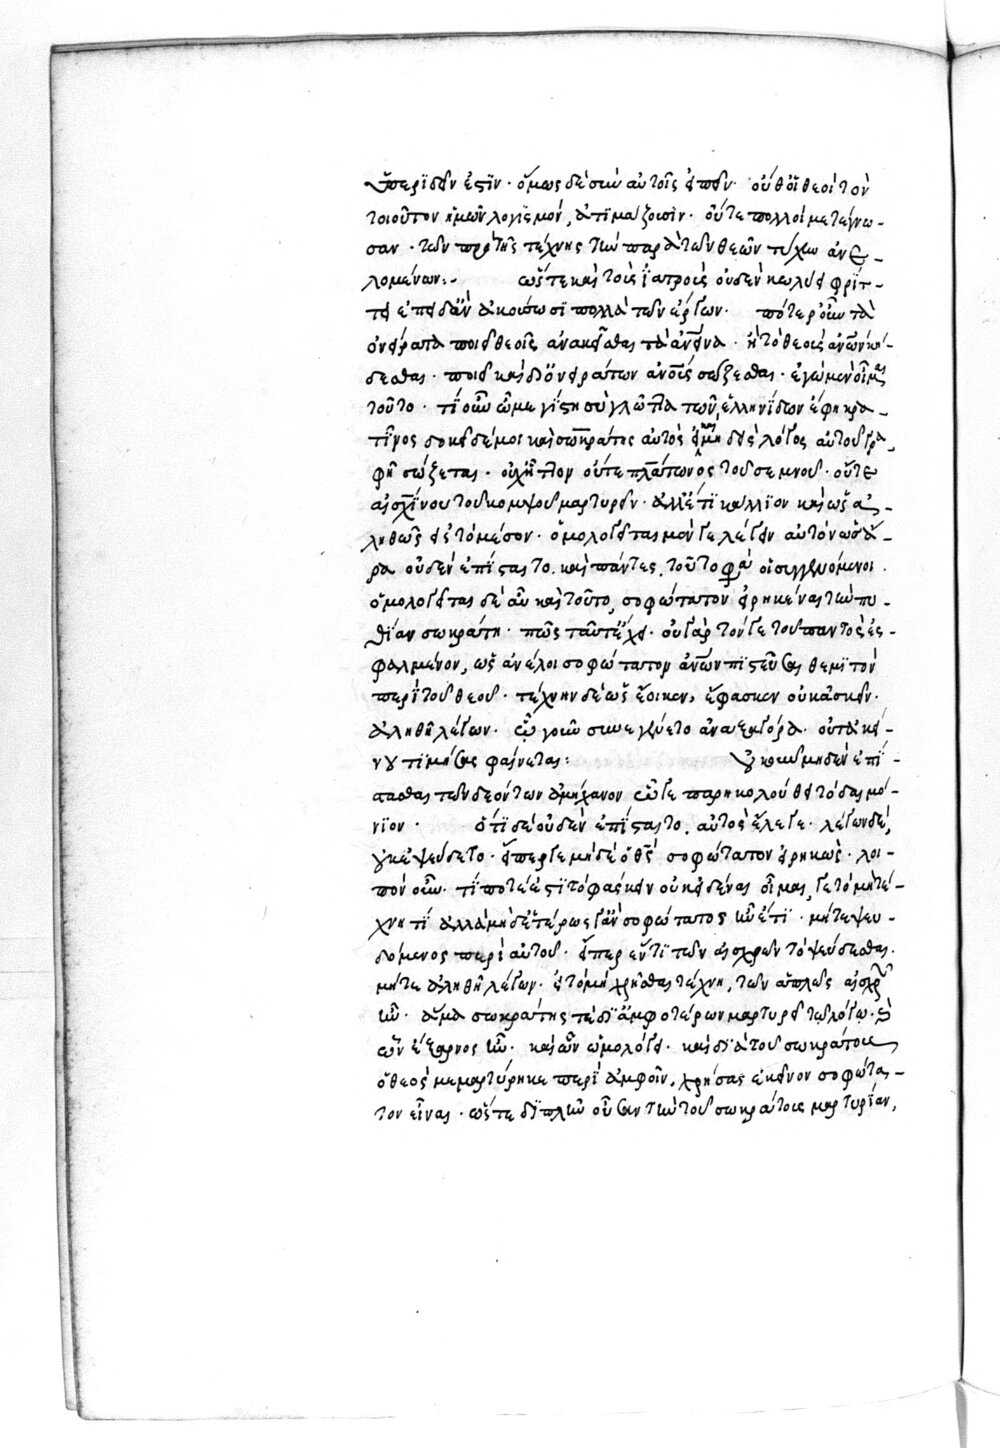 ὑπεριδεῖν ἐστὶν· ὅμως δὲ σὺν αὐτοῖς εἰπεῖν· οὐθ' οἱ θεοὶ τὸν
τοιοῦτον ἡμῶν λογισμὸν, ἀτιμάζουσιν· οὔτε πολλοὶ μετέγνω-
σαν· τῶν πρὸ τῆς τέχνης τὴν παρὰ τῶν θεῶν τύχην ἀνε-
λομένων:- ὥστε καὶ τοῖς ἰατροῖς οὐδὲν κωλύει φρίτ-
τειν ἐπειδὰν ἀκούσωσι πολλὰ τῶν ἔργων· πότερ' οὖν τὰ
ὀνείρατα ποιεῖ θεοῖς ἀνακεῖσθαι τὰ ἀνθρώπινα· ἢ τὸ θεοῖς ἀνθρώπων κή-
δεσθαι· ποιεῖ καὶ δι' ὀνειράτων ἀνθρώποις σώζεσθαι· ἐγὼ μὲν οἶμαι
τοῦτο· τί οὖν ὦ μεγίστη σὺ γλῶττα τῶν ἑλληνίδων ἔφη κρα-
τῖνος δοκεῖ δέ μοι καὶ σωκράτης αὐτὸς ἐμῇ δὴ ὁ λόγος αὐτοῦ γρα-
φῇ σώζεται· οὐχ ἧττον οὔτε πλάτωνος τοῦ σεμνοῦ· οὔτε
αἰσχίνου τοῦ κομψοῦ μαρτυρεῖν· ἀλλ' ἔτι κάλλιον καὶ ὡς ἀ-
ληθῶς εἰς τὸ μέσον· ὁμολογεῖται μέν γε λέγειν αὐτὸν ὡς ἄ-
ρα οὐδὲν ἐπίσταιτο. καὶ πάντες, τοῦτό φασιν οἱ συγγενόμενοι·
ὁμολογεῖται δὲ αὖ καὶ τοῦτο, σοφώτατον εἰρηκέναι τὴν πυ-
θίαν σωκράτη· πῶς ταῦτ' ἔχει· οὐ γὰρ τόν γε τοῦ παντὸς ἐσ-
φαλμένον, ὡς ἀνέλοι σοφώτατον ἀνθρώπων πιστεῦσαι θεμιτὸν
περὶ τοῦ θεοῦ· τέχνην δὲ ὡς ἔοικεν, ἔφασκεν οὐκ ἀσκεῖν·
ἀληθῆ λέγων· ᾧ γοῦν συνεγένετο ἀναξαγόρα· οὐ τὰ 'κεί-
νου τιμήσας φαίνεται: ᾧ καὶ μηδὲν ἐπί-
στασθαι τῶν δεόντων ἀμήχανον ᾧ γε παρηκολούθει τὸ δαιμό-
νιον· ὅτι δὲ οὐδὲν ἐπίσταιτο, αὐτὸς ἔλεγε· λέγων δὲ,
οὐκ ἐψεύδετο· εἴπερ γε μηδὲ ὁ θεὸς σοφώτατον εἰρηκώς· λοι-
πὸν οὖν· τί ποτέ ἐστι τὸ φάσκειν οὐκ εἰδέναι οἶμαι, γε τὸ μὴ τέ-
χνῃ τί ἀλλὰ μηδ' ἑτέρως γ' ἂν σοφώτατος ἦν ἔτι· μήτε ψευ-
δόμενος περὶ αὑτοῦ· εἴπερ ἕν τι τῶν αἰσχρῶν τὸ ψεύδεσθαι.
μήτε ἀληθῆ λέγων· εἰ τὸ μὴ χρῆσθαι τέχνῃ, τῶν ἁπλῶς αἰσχρῶν
ἦν· ἅμα σωκράτης τε δι' ἀμφοτέρων μαρτυρεῖ τῷ λόγῳ· ἃ
ὧν ἔξαρνος ἦν· καὶ ὧν ὡμολόγει· καὶ διὰ τοῦ σωκράτους
ὁ θεὸς μεμαρτύρηκε περὶ ἀμφοῖν, χρήσας ἐκεῖνον σοφώτα-
τον εἶναι· ὥστε διπλῆν οὖσαν τὴν τοῦ σωκράτους μαρτυρίαν,